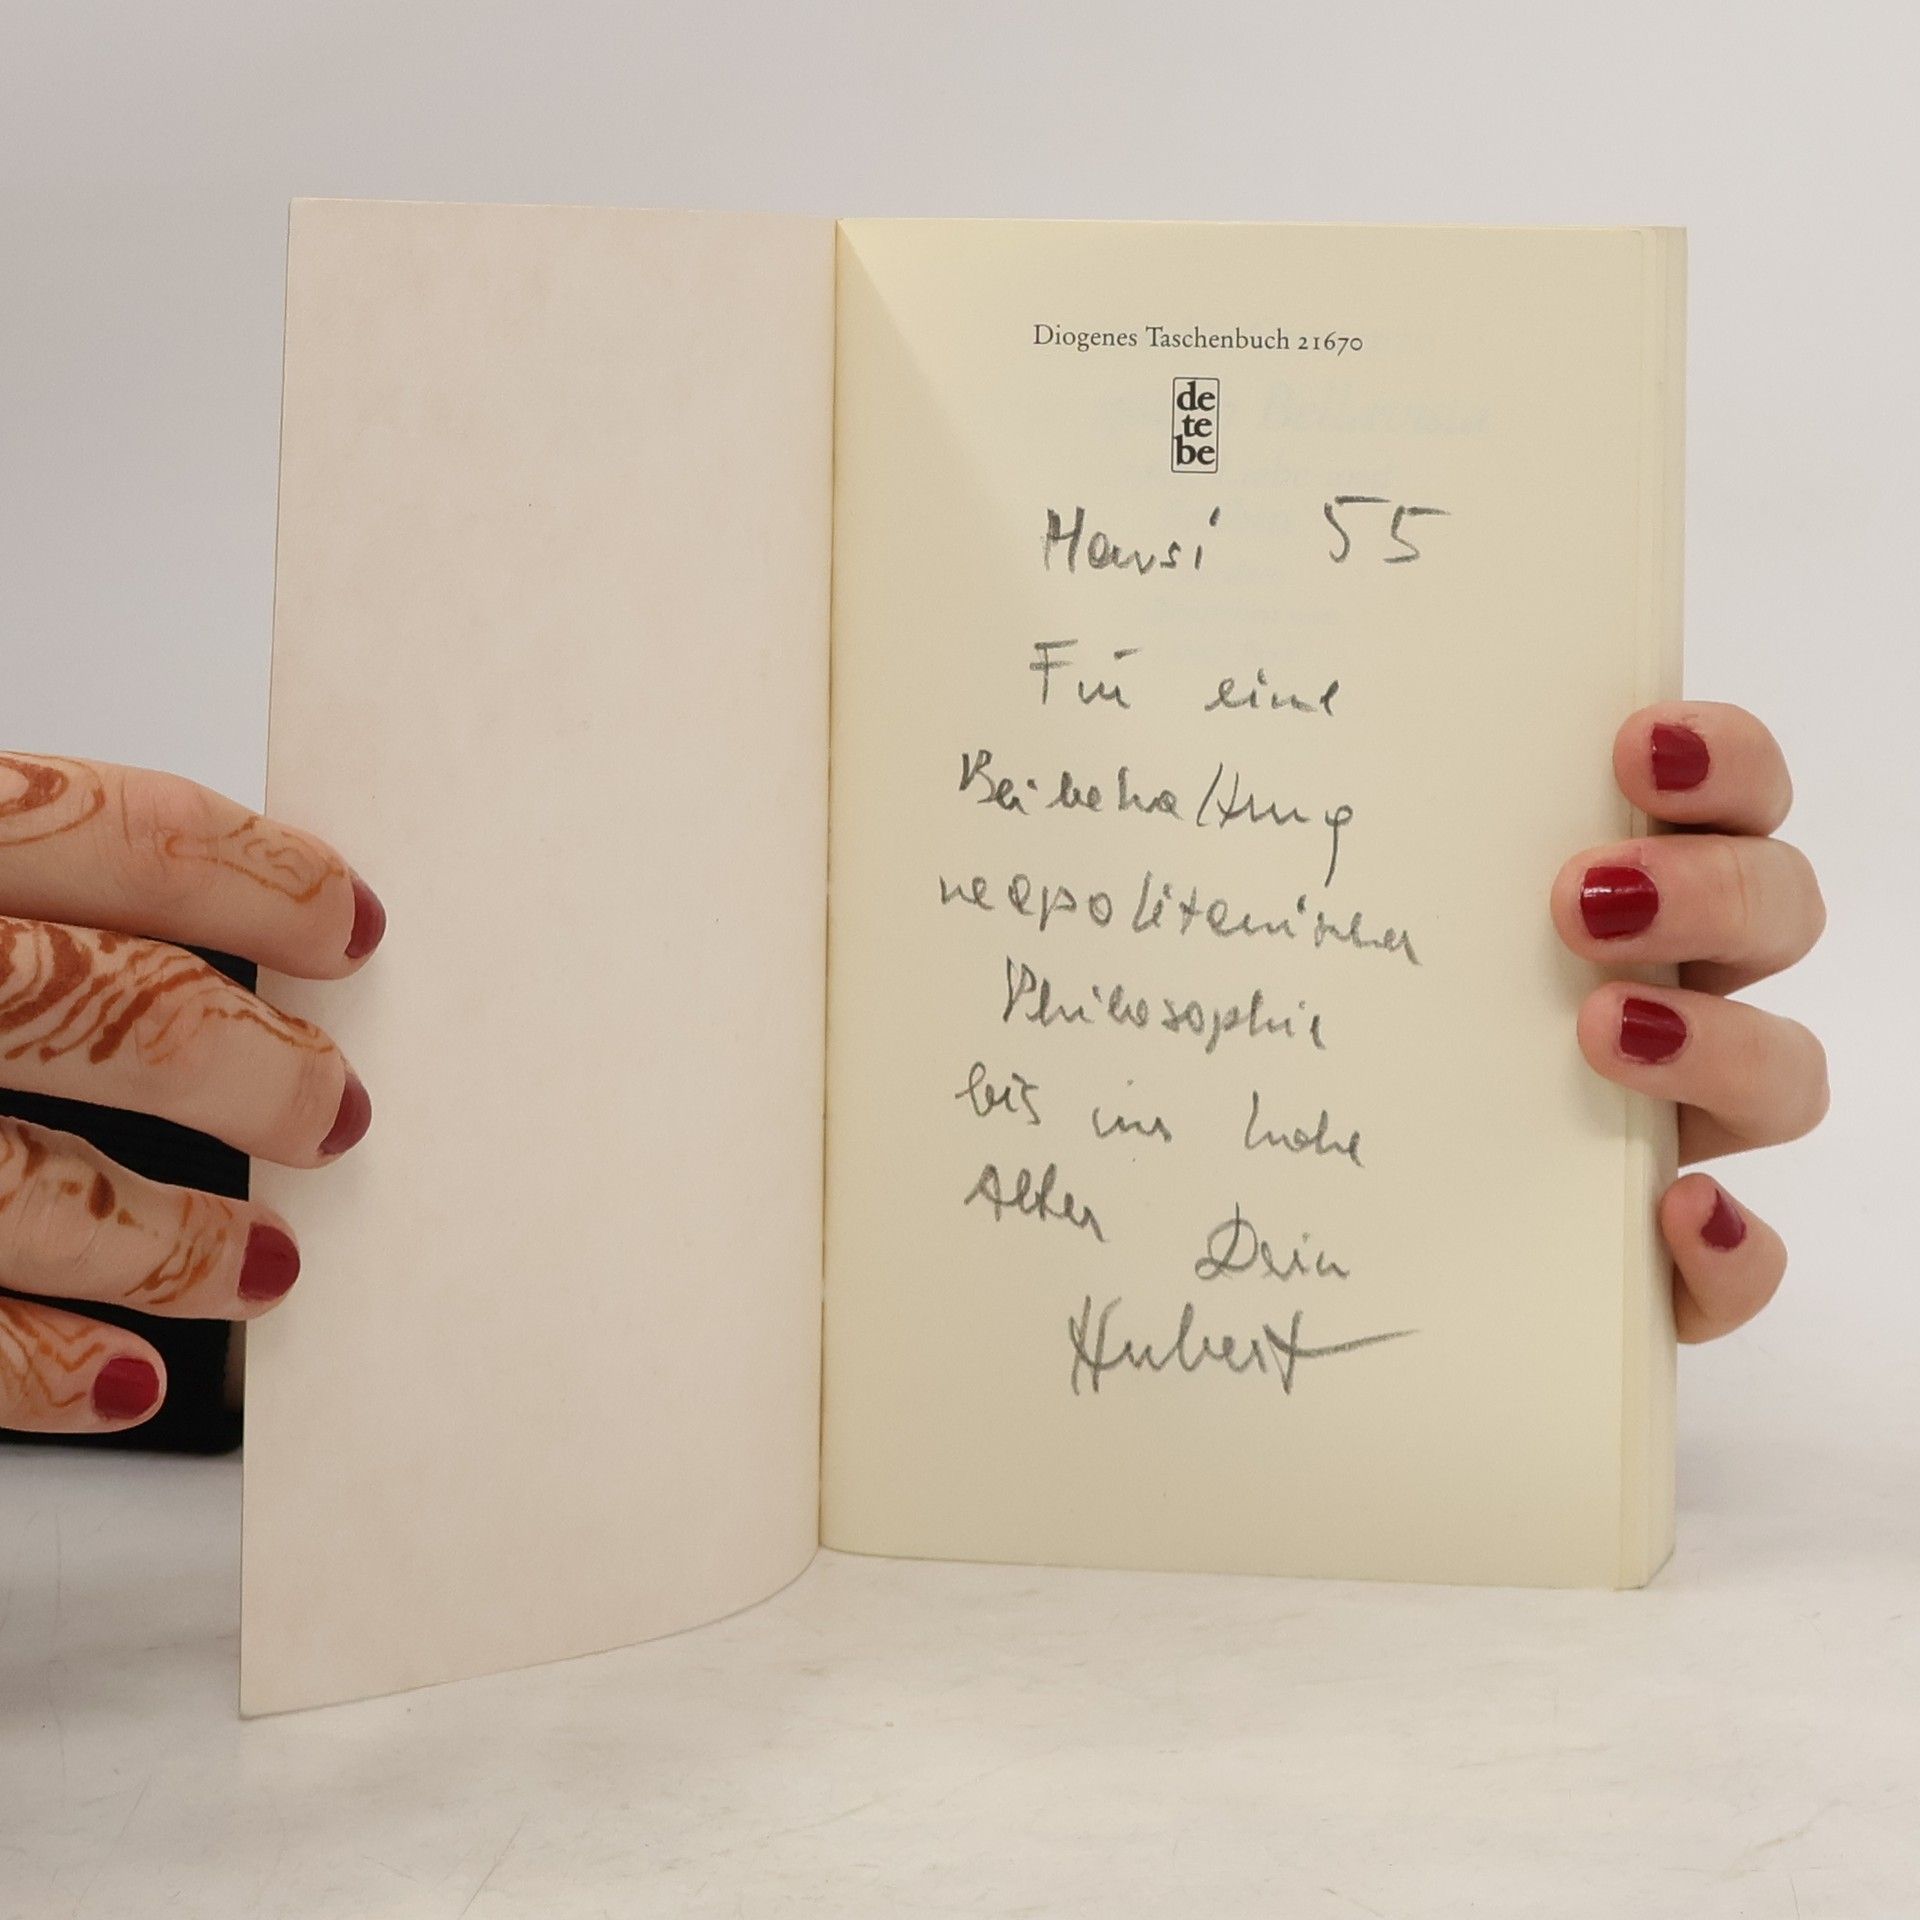 Diogenes Taschenbuch 21670
de
te
be
Hansi 55
Für eine
Beibehaltung
neapolitanischer
Philosophie
bis ins hohe
Alter Dein
Hubert